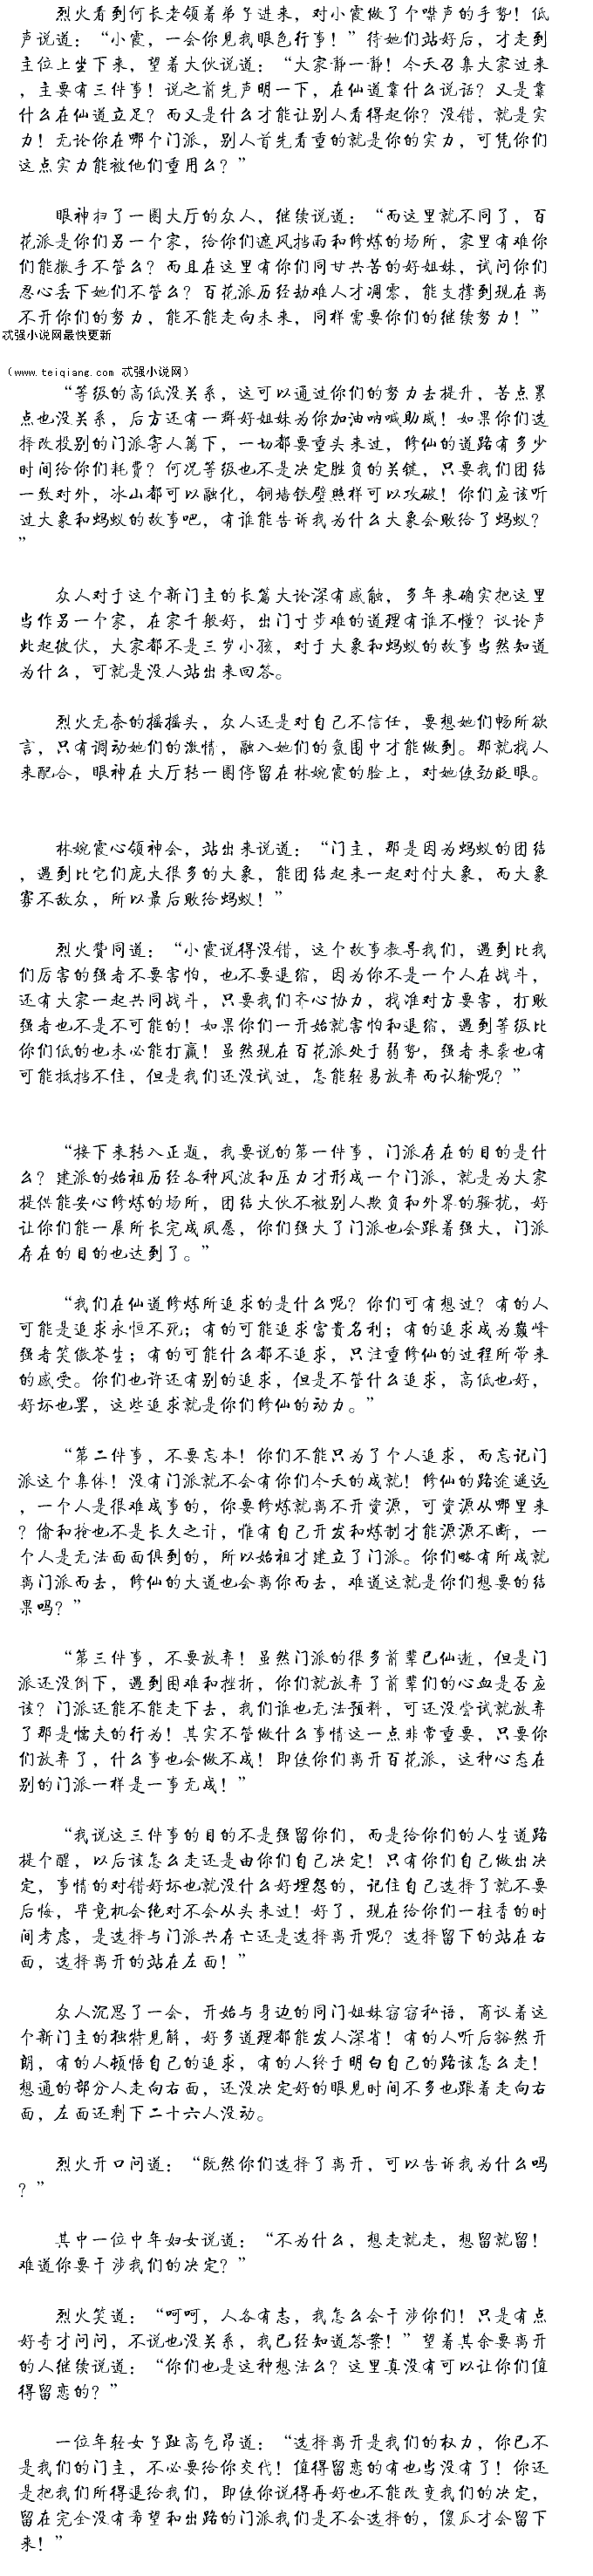 烈火看到何长老领着弟子进来，对小霞做了个噤声的手势！低
声说道：“小霞，一会你见我眼色行事！”待她们站好后，才走到
主位上坐下来，望着大伙说道：“大家静一静！今天召集大家过来
，主要有三件事！说之前先声明一下，在仙道靠什么说话？又是靠
什么在仙道立足？而又是什么才能让别人看得起你？没错，就是实
力！无论你在哪个门派，别人首先看重的就是你的实力，可凭你们
这点实力能被他们重用么？”
眼神扫了一圈大厅的众人，继续说道：“而这里就不同了，百
花派是你们另一个家，给你们遮风挡雨和修炼的场所，家里有难你
们能撒手不管么？而且在这里有你们同甘共苦的好姐妹，试问你们
忍心丢下她们不管么？百花派历经劫难人才凋零，能支撑到现在离
不开你们的努力，能不能走向未来，同样需要你们的继续努力！”
忒强小说网最快更新
（www.teiqiang.com 忒强小说网）
“等级的高低没关系，这可以通过你们的努力去提升，苦点累
点也没关系，后方还有一群好姐妹为你加油呐喊助威！如果你们选
择改投别的门派寄人篱下，一切都要重头来过，修仙的道路有多少
时间给你们耗费？何况等级也不是决定胜负的关键，只要我们团结
一致对外，冰山都可以融化，铜墙铁壁照样可以攻破！你们应该听
过大象和蚂蚁的故事吧，有谁能告诉我为什么大象会败给了蚂蚁？
”
众人对于这个新门主的长篇大论深有感触，多年来确实把这里
当作另一个家，在家千般好，出门寸步难的道理有谁不懂？议论声
此起彼伏，大家都不是三岁小孩，对于大象和蚂蚁的故事当然知道
为什么，可就是没人站出来回答。
烈火无奈的摇摇头，众人还是对自己不信任，要想她们畅所欲
言，只有调动她们的激情，融入她们的氛围中才能做到。那就找人
来配合，眼神在大厅转一圈停留在林婉霞的脸上，对她使劲眨眼。
林婉霞心领神会，站出来说道：“门主，那是因为蚂蚁的团结
，遇到比它们庞大很多的大象，能团结起来一起对付大象，而大象
寡不敌众，所以最后败给蚂蚁！”
烈火赞同道：“小霞说得没错，这个故事教导我们，遇到比我
们厉害的强者不要害怕，也不要退缩，因为你不是一个人在战斗，
还有大家一起共同战斗，只要我们齐心协力，找准对方要害，打败
强者也不是不可能的！如果你们一开始就害怕和退缩，遇到等级比
你们低的也未必能打赢！虽然现在百花派处于弱势，强者来袭也有
可能抵挡不住，但是我们还没试过，怎能轻易放弃而认输呢？”
“接下来转入正题，我要说的第一件事，门派存在的目的是什
么？建派的始祖历经各种风波和压力才形成一个门派，就是为大家
提供能安心修炼的场所，团结大伙不被别人欺负和外界的骚扰，好
让你们能一展所长完成夙愿，你们强大了门派也会跟着强大，门派
存在的目的也达到了。”
“我们在仙道修炼所追求的是什么呢？你们可有想过？有的人
可能是追求永恒不死；有的可能追求富贵名利；有的追求成为巅峰
强者笑傲苍生；有的可能什么都不追求，只注重修仙的过程所带来
的感受。你们也许还有别的追求，但是不管什么追求，高低也好，
好坏也罢，这些追求就是你们修仙的动力。”
“第二件事，不要忘本！你们不能只为了个人追求，而忘记门
派这个集体！没有门派就不会有你们今天的成就！修仙的路途遥远
，一个人是很难成事的，你要修炼就离不开资源，可资源从哪里来
？偷和抢也不是长久之计，惟有自己开发和炼制才能源源不断，一
个人是无法面面俱到的，所以始祖才建立了门派。你们略有所成就
离门派而去，修仙的大道也会离你而去，难道这就是你们想要的结
果吗？”
“第三件事，不要放弃！虽然门派的很多前辈已仙逝，但是门
派还没倒下，遇到困难和挫折，你们就放弃了前辈们的心血是否应
该？门派还能不能走下去，我们谁也无法预料，可还没尝试就放弃
了那是懦夫的行为！其实不管做什么事情这一点非常重要，只要你
们放弃了，什么事也会做不成！即使你们离开百花派，这种心态在
别的门派一样是一事无成！”
“我说这三件事的目的不是强留你们，而是给你们的人生道路
提个醒，以后该怎么走还是由你们自己决定！只有你们自己做出决
定，事情的对错好坏也就没什么好埋怨的，记住自己选择了就不要
后悔，毕竟机会绝对不会从头来过！好了，现在给你们一柱香的时
间考虑，是选择与门派共存亡还是选择离开呢？选择留下的站在右
面，选择离开的站在左面！”
众人沉思了一会，开始与身边的同门姐妹窃窃私语，商议着这
个新门主的独特见解，好多道理都能发人深省！有的人听后豁然开
朗，有的人顿悟自己的追求，有的人终于明白自己的路该怎么走！
想通的部分人走向右面，还没决定好的眼见时间不多也跟着走向右
面，左面还剩下二十六人没动。
烈火开口问道：“既然你们选择了离开，可以告诉我为什么吗
？”
其中一位中年妇女说道：“不为什么，想走就走，想留就留！
难道你要干涉我们的决定？”
烈火笑道：“呵呵，人各有志，我怎么会干涉你们！只是有点
好奇才问问，不说也没关系，我已经知道答案！”望着其余要离开
的人继续说道：“你们也是这种想法么？这里真没有可以让你们值
得留恋的？”
一位年轻女子趾高气昂道：“选择离开是我们的权力，你已不
是我们的门主，不必要给你交代！值得留恋的有也当没有了！你还
是把我们所得退给我们，即使你说得再好也不能改变我们的决定，
留在完全没有希望和出路的门派我们是不会选择的，傻瓜才会留下
来！”